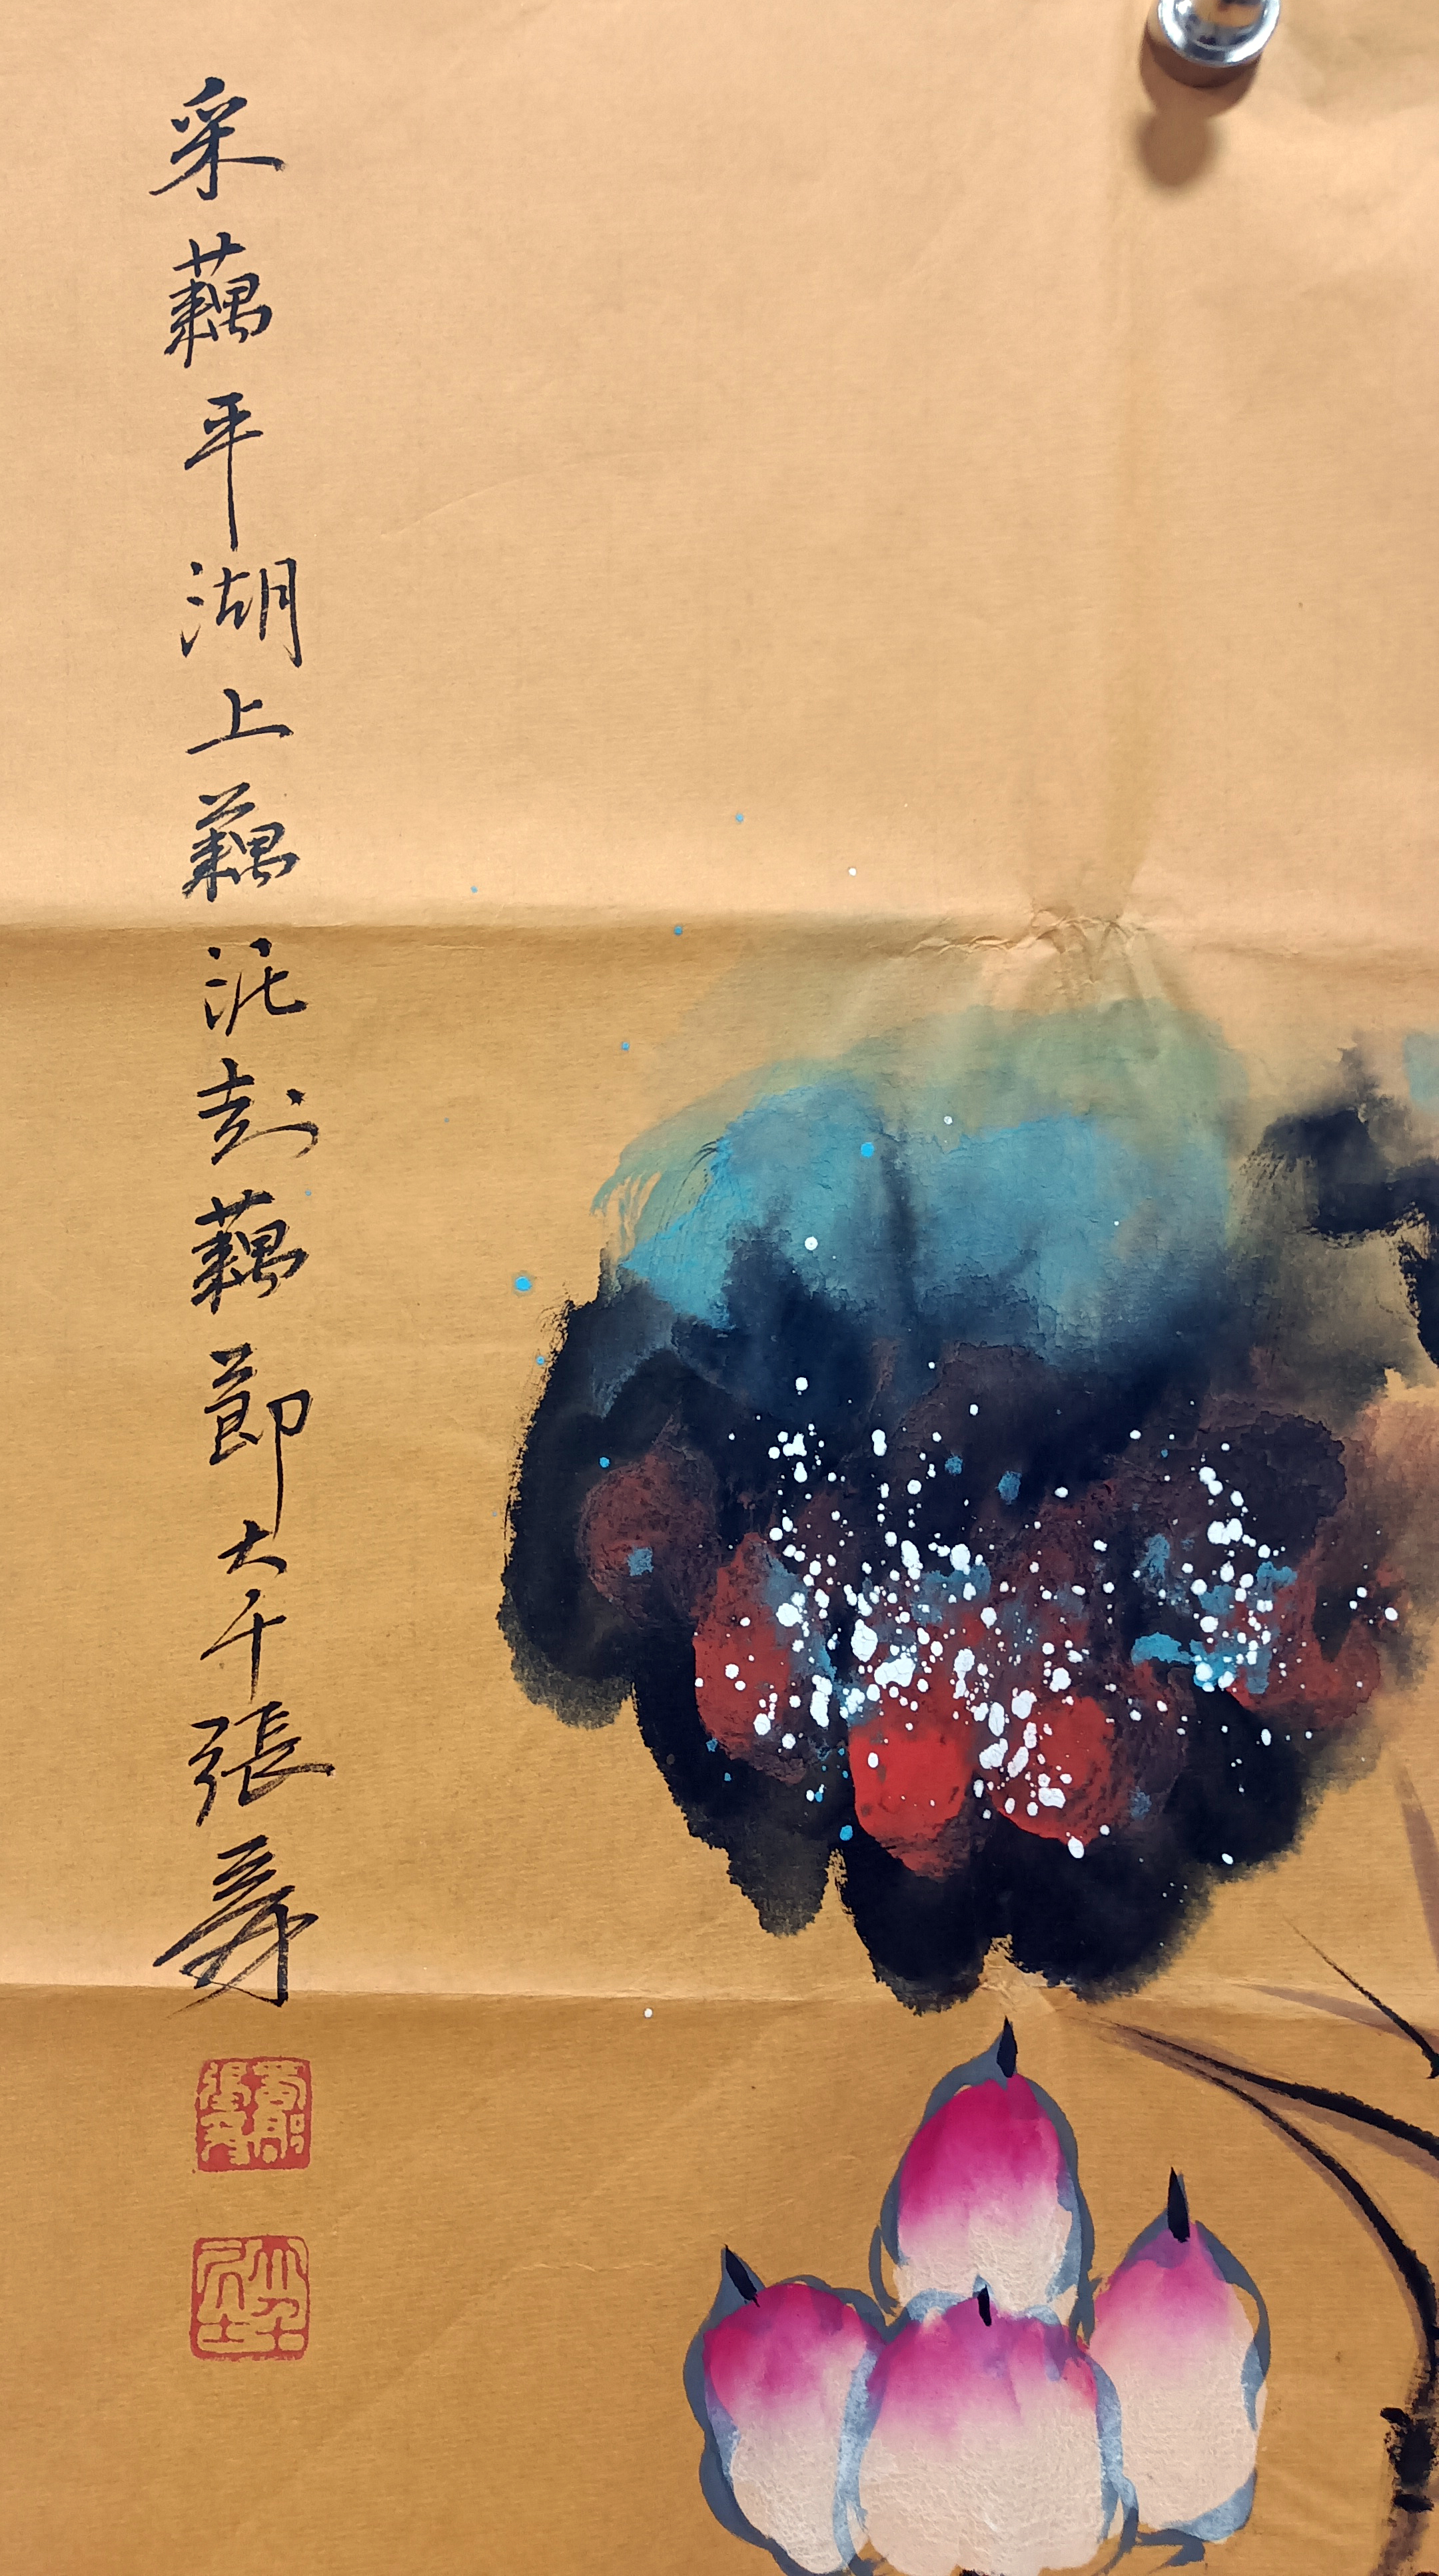 采藕平湖上藕泥封藕節大千張爰